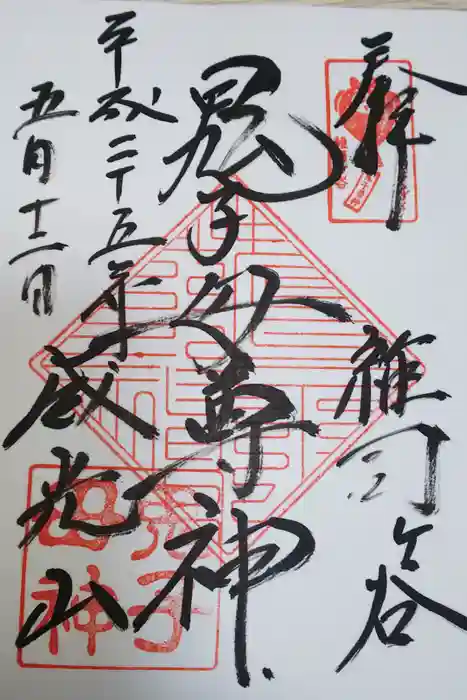 奉拝
雑司ヶ谷
鬼子母尊神
平成二十五年
五月十二日
威光山